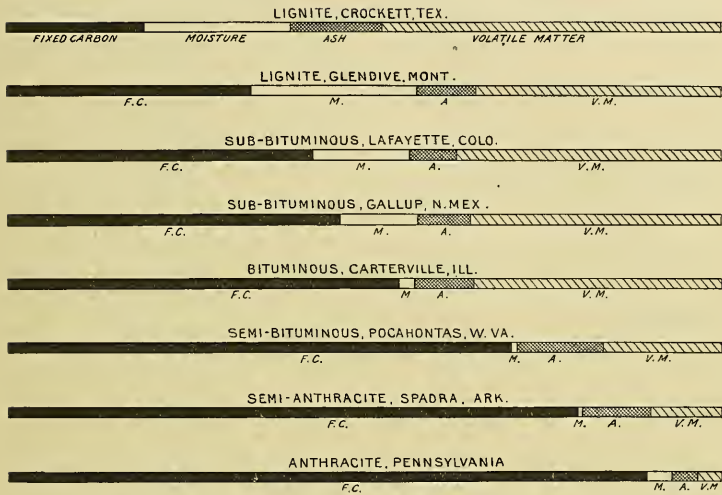 LIGNITE, CROCKETT, TEX.
FIXED CARBON MOISTURE ASH VOLATILE MATTER
LIGNITE, GLENDIVE, MONT.
F.C. M. A V.M.
SUB-BITUMINOUS, LAFAYETTE, COLO.
F.C. M. A. V.M.
SUB-BITUMINOUS, GALLUP, N.MEX.
F.C. M. A. V.M.
BITUMINOUS, CARTERVILLE, ILL.
F.C. M A. V.M.
SEMI-BITUMINOUS, POCAHONTAS, W.VA.
F.C. M. A. V.M.
SEMI-ANTHRACITE, SPADRA, ARK.
F.C. M. A. V.M.
ANTHRACITE, PENNSYLVANIA
F.C. M. A. V.M